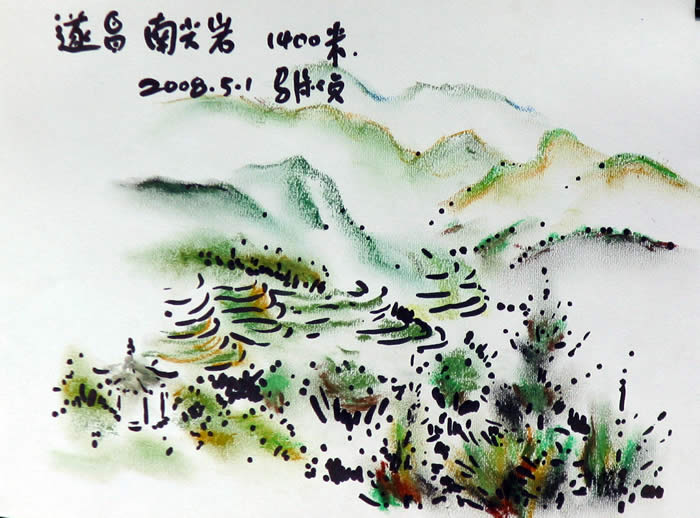 遂昌 南尖岩 1400米.
2008.5.1